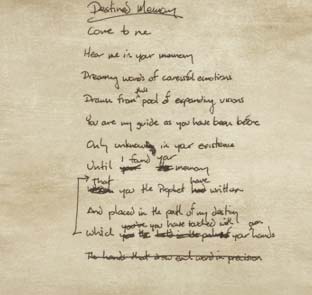 Destined Memory
Come to me
Hear me in your memory
Dreamy words of caressful emotions
Drawn from this pool of expanding visions
You are my guide as you have been before
Only unknown in your existence
Until I found your memory
That you the Prophet have written
And placed in the path of my destiny
Which you've you have touched with your own hands
The hands that draw each word in precision